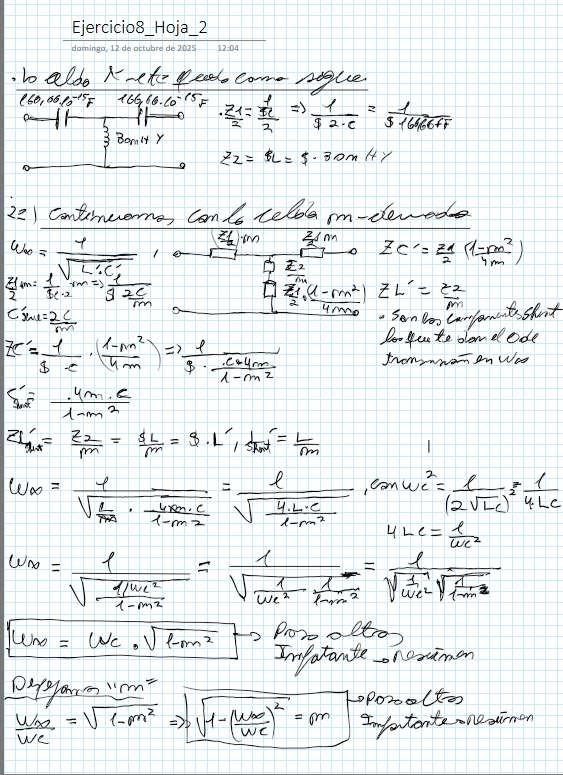 Ejercicio8_Hoja_2
domingo, 12 de octubre de 2025 12:04
como sigue
166,66.10^-15 F
30m HY
Z1/2 = 1/$C / 2 => 1/($ 2·C) = 1/($ 166,66fF)
Z2 = $L = $·30m HY
22) Continuamos con la celda m-derivada
W∞ = 1/√(L'·C')
(Z1/2)·m
Z1/2 m
ZC' = Z1/2 (1-m²/4m)
Z1/2 m = 1/($C·2) ·m => 1/($ 2C/m)
Z2/m
Z1·(1-m²)/4m
ZL' = Z2/m
C'serie = 2C/m
· Son los componentes Shunt
los que te dan el 0 de
transmisión en W∞
ZC' = 1/($·C) · (1-m²/4m) => 1/($· C·4m/(1-m²))
C'shunt = 4m·C/(1-m²)
ZL'shunt = Z2/m = $L/m = $·L', L'shunt = L/m
W∞ = 1/√(L/m · 4m·C/(1-m²)) = 1/√(4·L·C/(1-m²)), con Wc² = 1/(2√LC)² = 1/4LC
4LC = 1/Wc²
W∞ = 1/√((1/Wc²)/(1-m²)) = 1/√(1/Wc² · 1/(1-m²)) = 1/(√(1/Wc²) √(1/(1-m²)))
W∞ = Wc · √(1-m²) -> Paso altos
Impotante -> resumen
Despejamos "m"
W∞/Wc = √(1-m²) => √(1-(W∞/Wc)²) = m -> Paso altos
Impotante -> resumen